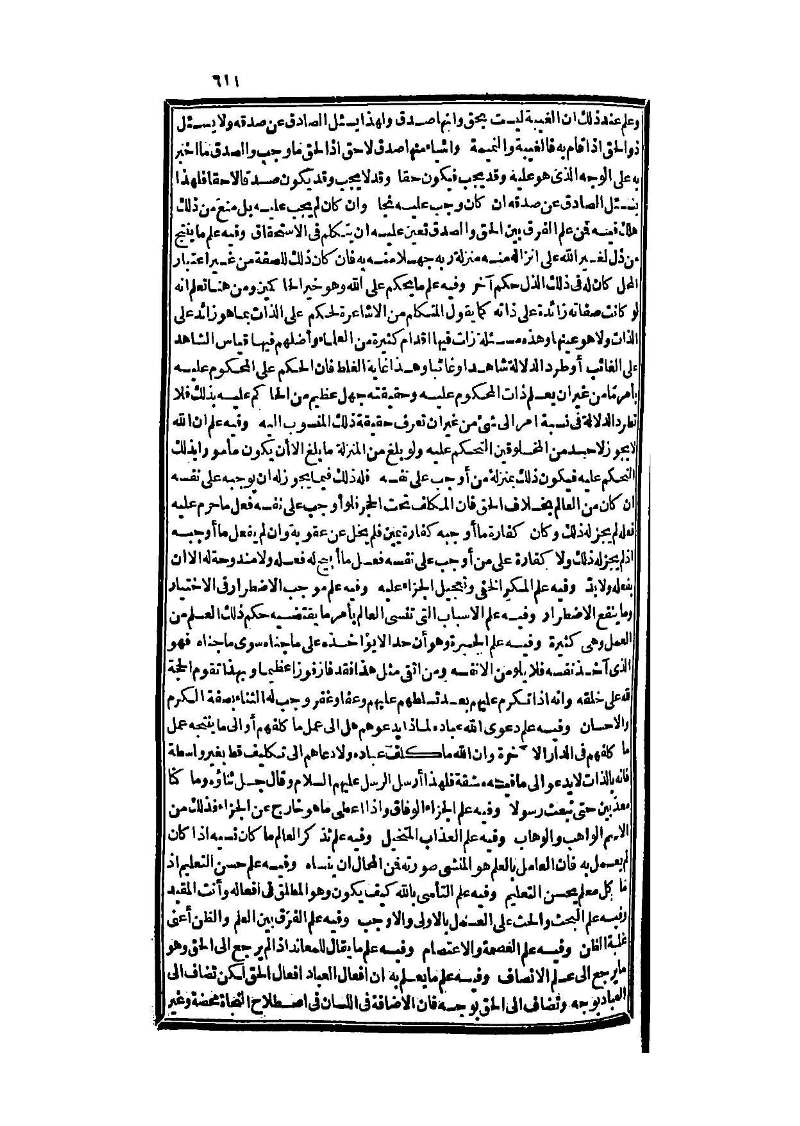 ٦١١
وعلم عند ذلك ان الغيبة ليست بحق وانها صدق ولهذا يسئل الصادق عن صدقه ولا يسئل
ذو الحق اذا قام به فالغيبة والنميمة واشباههما صدق لا حق اذ الحق ما وجب والصدق ما اخبر
به على الوجه الذى هو عليه وقد يجب فيكون حقا وقد لا يجب وقد يكون صدقا لا حقا فلهذا
يسئل الصادق عن صدقه ان كان وجب عليه نجا وان كان لم يجب عليه بل منع من ذلك
هلك فيه فمن علم الفرق بين الحق والصدق تعين عليه ان يتكلم فى الاستحقاق وفيه علم ما ينتج
من ذل لغير الله على انزاله منه منزلة ربه جهلا منه به فان كان ذلك للصفة من غير اعتبار
المحل كان له فى ذلك الذل حكم آخر وفيه علم ما يحكم على الله وهو خير الحاكمين ومن هنا تعلم انه
لو كانت صفاته زائدة على ذاته كما يقول المتكلم من الاشاعرة لحكم على الذات بما هو زائد على
الذات ولا هو عينها وهذه مسئلة زلت فيها اقدام كثيرة من العلماء وأضلهم فيها قياس الشاهد
على الغائب أو طرد الدلالة شاهدا وغائبا وهذا غاية الغلط فان الحكم على المحكوم عليه
بأمر ما من غير ان يعلم ذات المحكوم عليه وحقيقته جهل عظيم من الحاكم عليه بذلك فلا
تطرد الدلالة فى نسبة امر الى شئ من غير ان تعرف حقيقة ذلك المنسوب اليه وفيه علم ان الله
لا يجوز لاحد من المخلوقين التحكم عليه ولو بلغ من المنزلة ما بلغ الا أن يكون مأمورا بذلك
التحكم عليه فيكون ذلك بمنزلة من أوجب على نفسه فله ذلك فيما يجوز له ان يوجبه على نفسه
ان كان من العالم بخلاف الحق فان المكلف تحت الحجر فلو أوجب على نفسه فعل ما حرم عليه
فعله لم يجز له ذلك وكان كفارة ما أوجبه كفارة يمين فلم يخل عن عقوبة وان لم يفعل ما أوجبه
اذ لم يجز له ذلك ولا كفارة على من أوجب على نفسه فعل ما أبيح له فعله ولا مندوحة له الا ان
يفعله ولا بد وفيه علم المكر الخفى وتعجيل الجزاء عليه وفيه علم موجب الاضطرار فى الاختيار
وما ينفع الاضطرار وفيه علم الاسباب التى تنسى العالم بأمر ما يقتضيه حكم ذلك العلم من
العمل وهى كثيرة وفيه علم الحيرة وهو أن احدا لا يؤاخذه على ما جناه سوى ما جناه فهو
الذى آخذ نفسه فلا يلومن الا نفسه ومن اتقى مثل هذا فقد فاز فوزا عظيما وبهذا تقوم الحجة
لله على خلقه وانه اذا تكرم عليهم بعدم تسلطهم عليهم وعفا وغفر وجب له الثناء بصفة الكرم
والاحسان وفيه علم دعوى الله عباده لماذا يدعوهم هل الى عمل ما كلفهم أو الى ما ينتجه عمل
ما كلفهم فى الدار الآخرة وان الله ما كلف عباده ولا دعاهم الى تكليف قط بغير واسطة
فانه بالذات لا يدعو الى ما فيه مشقة فلهذا أرسل الرسل عليهم السلام وقال جل ثناؤه وما كنا
معذبين حتى نبعث رسولا وفيه علم الجزاء الوفاق واذا اعطى ما هو خارج عن الجزاء فذلك من
الاسم الواهب والوهاب وفيه علم العذاب المتخيل وفيه علم تذكر العالم ما كان نسيه اذا كان
لم يعمل به فان العامل بالعلم هو المنشئ صورته فمن المحال ان ينساه وفيه علم حسن التعليم اذ
ما كل معلم يحسن التعليم وفيه علم التأسى بالله كيف يكون وهو المطلق فى افعاله وأنت المقيد
وفيه علم البحث والحث على العمل بالاولى والاوجب وفيه علم الفرق بين العلم والظن أعنى
غلبة الظن وفيه علم العصمة والاعتصام وفيه علم ما يقال للمعاند اذا لم يرجع الى الحق وهو
ما يرجع الى علم الانصاف وفيه علم ما يعلم به ان افعال العباد افعال الحق لكن تضاف الى
العباد بوجه وتضاف الى الحق بوجه فان الاضافة فى اللسان فى اصطلاح النحاة محضة وغير